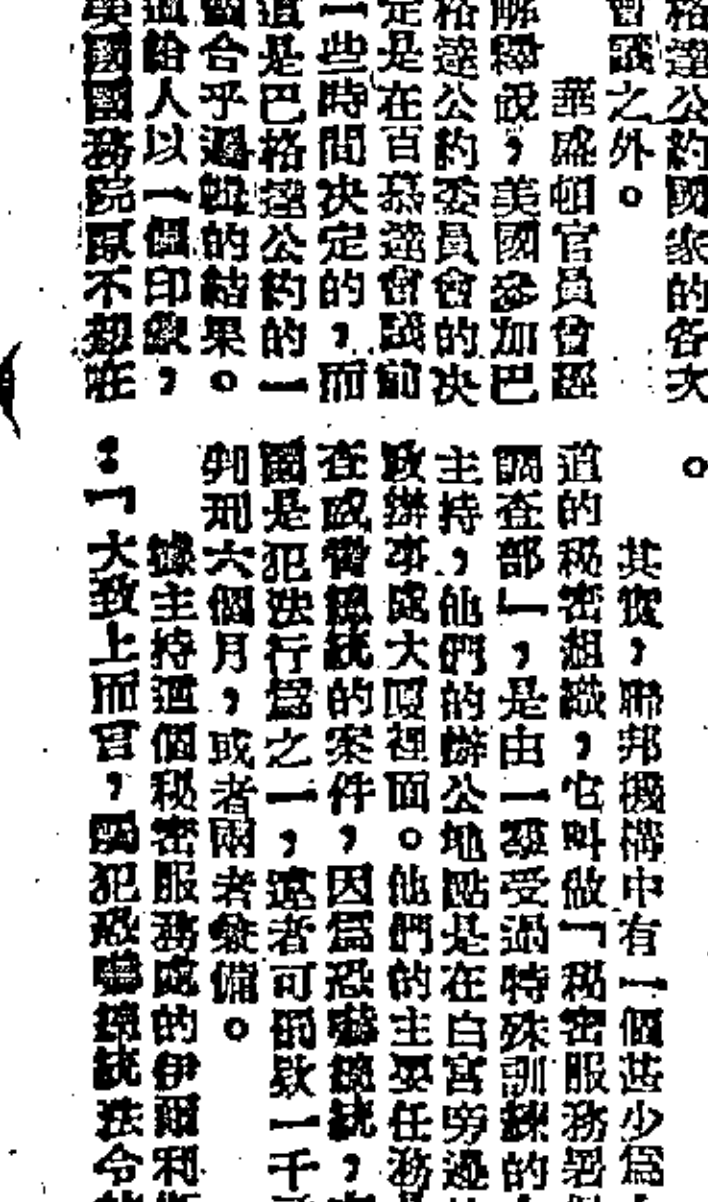 格達公約國家的各次
會議之外。
華盛頓官員曾經
解釋說，美國參加巴
格達公約委員會的决
定是在百慕達會議前
一些時間决定的，而
這是巴格達公約的一
個合乎邏輯的結果。
這給人以一個印象，
美國國務院原不想在
。
其實，聯邦機構中有一個甚少爲
道的秘密組織，它叫做「秘密服務署
調查部」，是由一羣受過特殊訓練的
主持，他們的辦公地點是在白宮旁邊
政辦事處大厦裡面。他們的主要任務
查威脅總統的案件，因爲恐嚇總統，
國是犯法行爲之一，違者可罰欵一千
判刑六個月，或者兩者兼備。
據主持這個秘密服務處的伊爾利
：「大致上而言，觸犯恐嚇總統法令